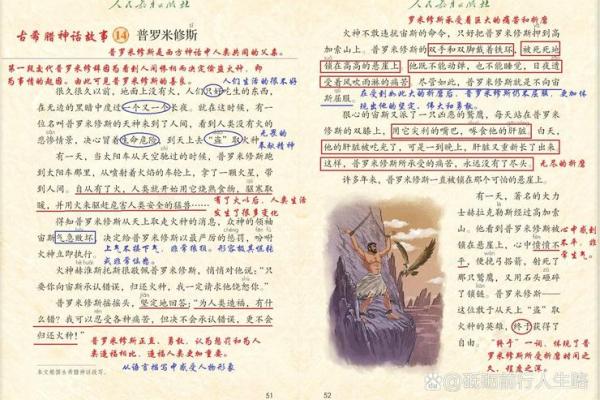 人民教育出版社
古希腊神话故事 14 普罗米修斯
普罗米修斯是西方神话中人类共同的父亲。
很久很久以前,地面上没有火,人们只好吃生的东西,
人们生活的很不好
在无边的黑暗中度过一个又一个长夜。就在这时候,有一
位名叫普罗米修斯的天神来到了人间,看到人类没有火的
悲惨情景,决心冒着生命危险,到天上去“盗”取火种。
无畏的
奉献精神
有一天,当太阳车从天空驰过的时候,普罗米修斯跑
到太阳车那里,从喷射着火焰的车轮上,拿了一颗火星,带
到人间。自从有了火,人类就开始用它烧熟食物,驱寒取
暖,并用火来驱赶危害人类安全的猛兽……
有了火以后,人类生活
发生了很多变化
得知普罗米修斯从天上取走火种的消息,众神的领袖
宙斯气急败坏,决定给普罗米修斯以最严厉的惩罚,吩咐
火神立即执行。
火神赫淮斯托斯很敬佩普罗米修斯,悄悄对他说:“只
要你向宙斯承认错误,归还火种,我一定请求他饶恕你。”
普罗米修斯摇摇头,坚定地回答:“为人类造福,有什
么错?我可以忍受各种痛苦,但决不会承认错误,更不会
归还火种!”
普罗米修斯正直、勇敢,认为惩罚和为人
类造福相比,造福人类更加重要。
从语言描写中感受人物形象
本文根据古希腊神话改写。
51
人民教育出版社
普罗米修斯承受着巨大的痛苦和折磨
火神不敢违抗宙斯的命令,只好把普罗米修斯押到高
加索山上。普罗米修斯的双手和双脚戴着铁环,被死死地
锁在高高的悬崖上。他既不能动弹,也不能睡觉,日夜遭
受着风吹雨淋的痛苦。尽管如此,普罗米修斯就是不向宙
斯屈服。
在受到如此大的磨后,普罗米修斯仍不屈服,更加体
现出他的坚定、伟大和勇敢。
狠心的宙斯又派了一只凶恶的鹫鹰,每天站在普罗米
修斯的双膝上,用它尖利的嘴巴,啄食他的肝脏。白天,
他的肝脏被吃光了,可是一到晚上,肝脏又重新长了出来
这样,普罗米修斯所承受的痛苦,永远没有了尽头。
无尽的折磨
许多年来,普罗米修斯一直被锁在那个可怕的悬崖上。
有一天,著名的大力
士赫拉克勒斯经过高加索
山。他看到普罗米修斯被
锁在悬崖上,心中愤愤不
平,便挽弓搭箭,射死了
那只鹫鹰,又用石头砸碎
了锁链。普罗米修斯——
这位敢于从天上“盗”取
火种的英雄,终于获得了
自由。
心中感到
不平,非
常生气。
“终于”一词,体现了普
罗米修斯所受折磨时间之
久,程度之深。
52